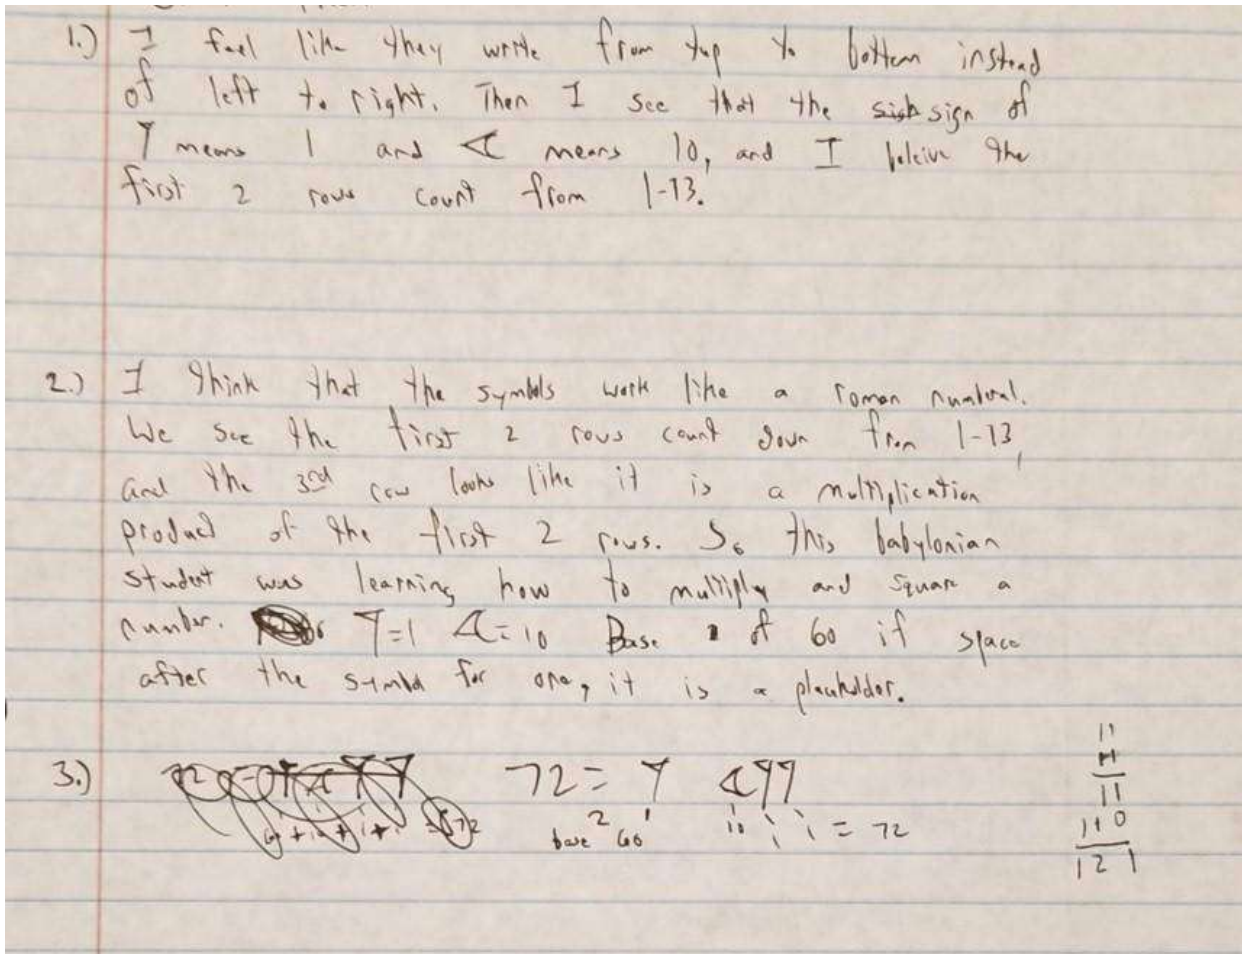 1.) I feel like they write from top to bottom instead
of left to right. Then I see that the sign of
𒁹 means 1 and 𒌋 means 10, and I beleive the
first 2 rows count from 1-13.
2.) I think that the symbols work like a roman numeral.
We see the first 2 rows count down from 1-13,
and the 3rd row looks like it is a multiplication
product of the first 2 rows. So this babylonian
student was learning how to multiply and square a
number. 𒁹=1 𒌋=10 Base of 60 if space
after the symbol for one, it is a placeholder.
3.) 72 = 𒁹 𒌋𒁹𒁹
base 60 10 1 1 = 72
11
11
11
110
121